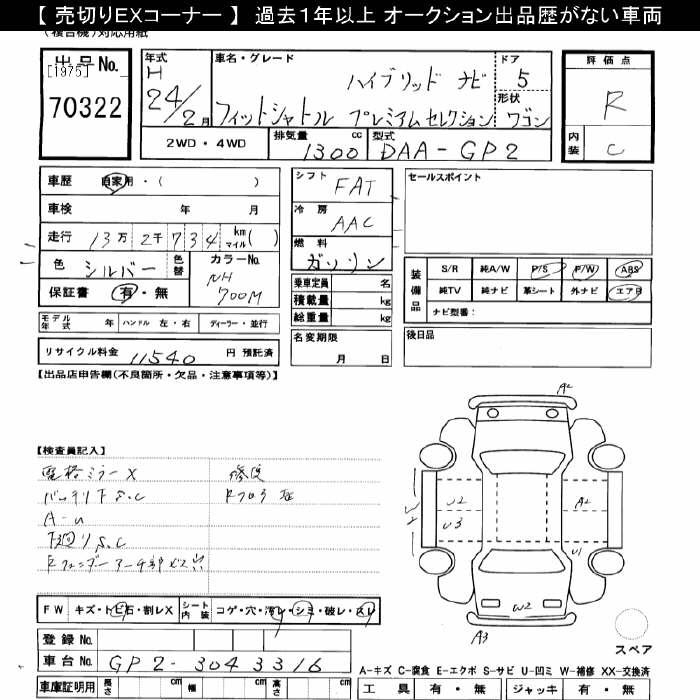 【 売切りEXコーナー 】 過去1年以上 オークション出品歴がない車両
(複合機)対応用紙
出品No.
[1975]
70322
年式
H
24/2月
車名・グレード
ハイブリッド ナビ
フィットシャトル プレミアムセレクション
ドア
5
形状
ワゴン
評価点
R
内装
C
2WD・4WD
排気量
1300 cc
型式
DAA-GP2
車歴 自家用・( )
車検 年 月
走行 13万 2千 7 3 4 km マイル( )
色 シルバー 色替
カラーNo.
NH
700M
保証書 有・無
シフト FAT
冷房 AAC
燃料 ガソリン
乗車定員 名
積載量 kg
総重量 kg
セールスポイント
装備品
S/R 純A/W P/S P/W ABS
純TV 純ナビ 革シート 外ナビ エアB
ナビ型番:
モデル年式 年 ハンドル 左・右 ディーラー・並行
名変期限 月 日
後日品
リサイクル料金 11540 円 預託済
【出品店申告欄(不良箇所・欠品・注意事項等)】
【検査員記入】
電格ミラーX
バッテリ下S.C
A-U
下廻りS.C
修復
Rフロア
A2
U2
U3
A2
U1
W2
A3
FW キズ・トビ石・割レX
シート内装 コゲ・穴・汚レ・シミ・破レ・スレ
登録No.
車台No. GP2-3043316
車庫証明用 長さ cm 幅 cm 高さ cm
スペア
A-キズ C-腐食 E-エクボ S-サビ U-凹ミ W-補修 XX-交換済
工具 有・無 ジャッキ 有・無